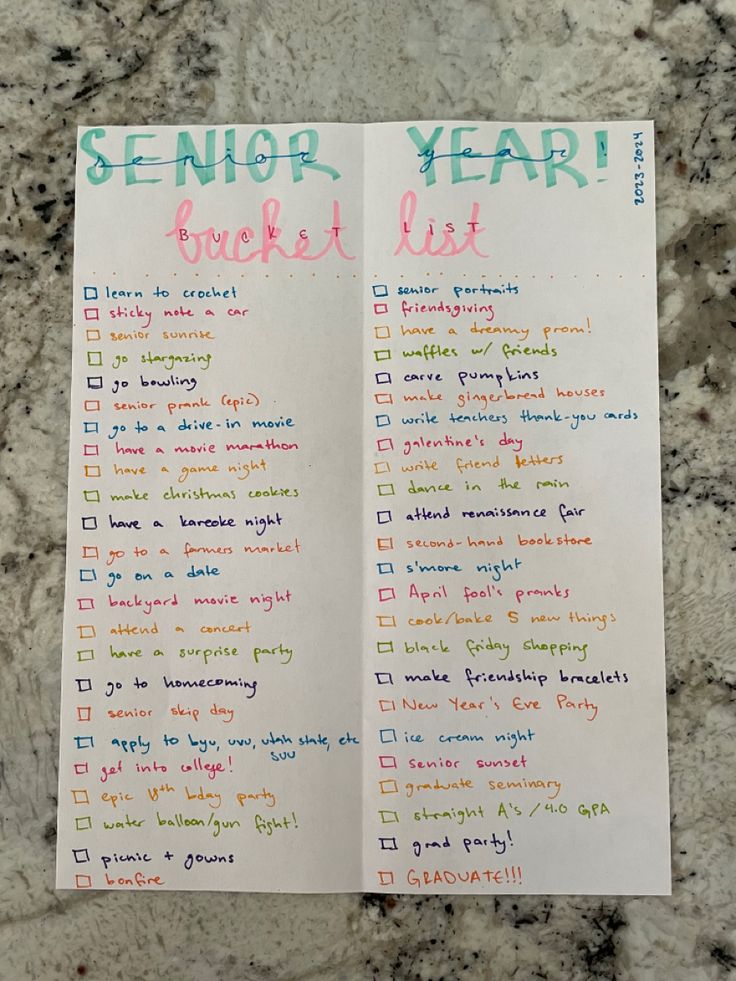 SENIOR YEAR!
senior year!
2023-2024
bucket list
BUCKET LIST
learn to crochet
sticky note a car
senior sunrise
go stargazing
go bowling
senior prank (epic)
go to a drive-in movie
have a movie marathon
have a game night
make christmas cookies
have a kareoke night
go to a farmers market
go on a date
backyard movie night
attend a concert
have a surprise party
go to homecoming
senior skip day
apply to byu, uvu, utah state, etc
suu
get into college!
epic 18th bday party
water balloon/gun fight!
picnic + gowns
bonfire
senior portraits
friendsgiving
have a dreamy prom!
waffles w/ friends
carve pumpkins
make gingerbread houses
write teachers thank-you cards
galentine's day
write friend letters
dance in the rain
attend renaissance fair
second-hand bookstore
s'more night
April fool's pranks
cook/bake 5 new things
black friday shopping
make friendship bracelets
New Year's Eve Party
ice cream night
senior sunset
graduate seminary
straight A's / 4.0 GPA
grad party!
GRADUATE!!!